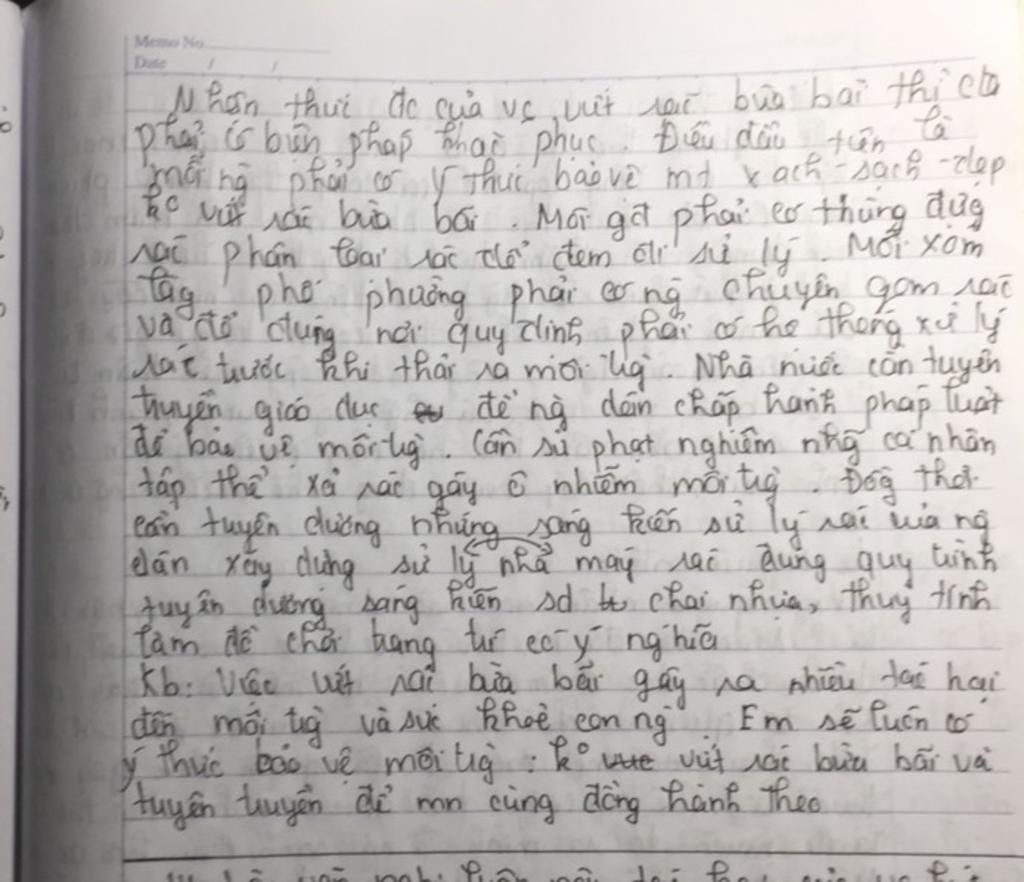 Memo No.
Date / /
Nhận thức đc của vc vứt rác bừa bãi thì cta
phải có biện pháp khắc phục. Điều đầu tiên là
mỗi ng phải có ý thức bảo vệ mt xach-sạch-đẹp
ko vứt rác bừa bãi. Mỗi gđ phải có thùng đựg
rác phân loại rác để đem đi sử lý. Mỗi xóm
làg phố phường phải có ng chuyên gom rác
và đổ đúng nơi quy định phải có hệ thống xử lý
rác trước khi thải ra môi tg. Nhà nước cần tuyên
truyền giáo dục để ng dân chấp hành pháp luật
để bảo vệ môi tg. Cần sử phạt nghiêm nhg cá nhân
tập thể xả rác gây ô nhiễm môi tg. Đồg thời
cần tuyên dương những sáng kiến sử lý rác của ng
dân xây dựng sử lý nhà máy rác đúng quy trình
tuyên dương sáng kiến sd chai nhựa, thuỷ tinh
làm đồ chơi trang trí có ý nghĩa
Kb: Việc vứt rác bừa bãi gây ra nhiều tác hại
đến môi tg và sức khoẻ con ng Em sẽ luôn có
ý thức bảo vệ môi tg: ko vứt rác bừa bãi và
tuyên truyền để mn cùng đồng hành theo